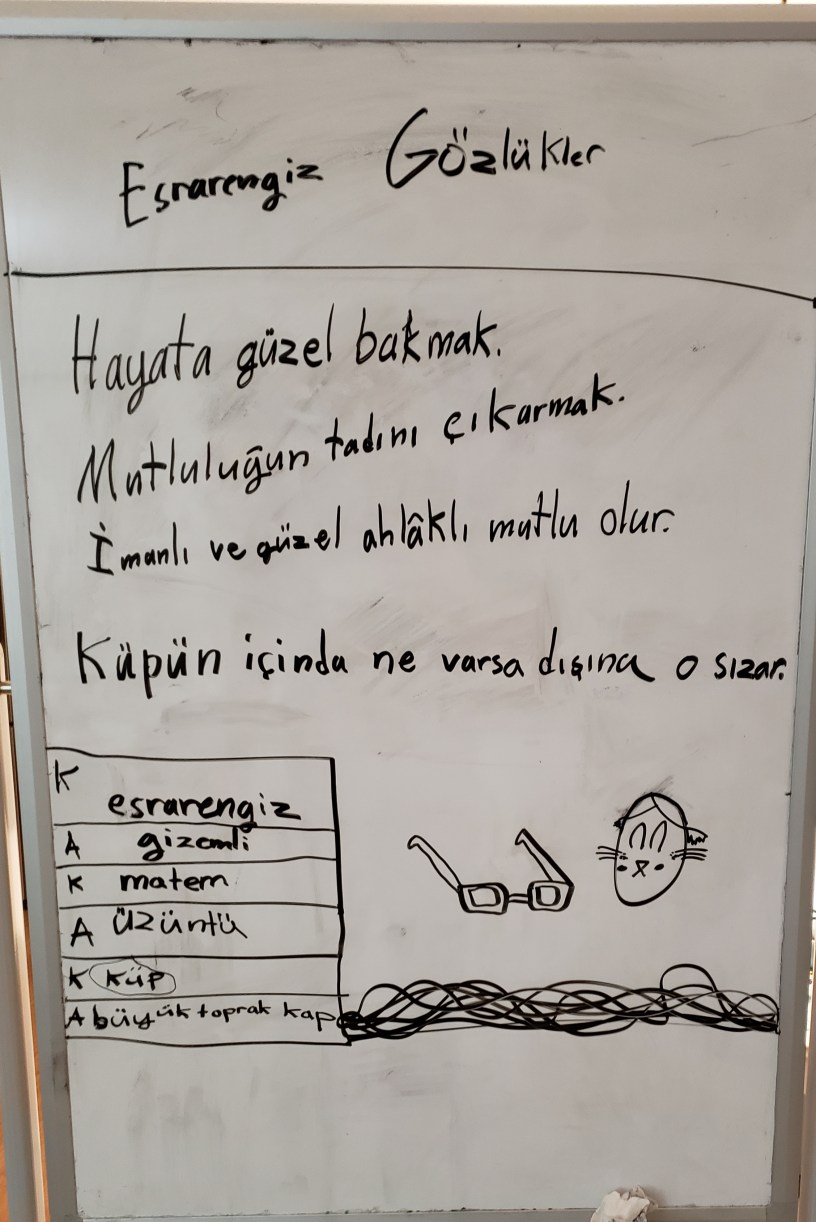 Esrarengiz Gözlükler
Hayata güzel bakmak.
Mutluluğun tadını çıkarmak.
İmanlı ve güzel ahlâklı mutlu olur.
Küpün içinda ne varsa dışına o sızar.
K esrarengiz
A gizemli
K matem
A üzüntü
K küp
A büyük toprak kap